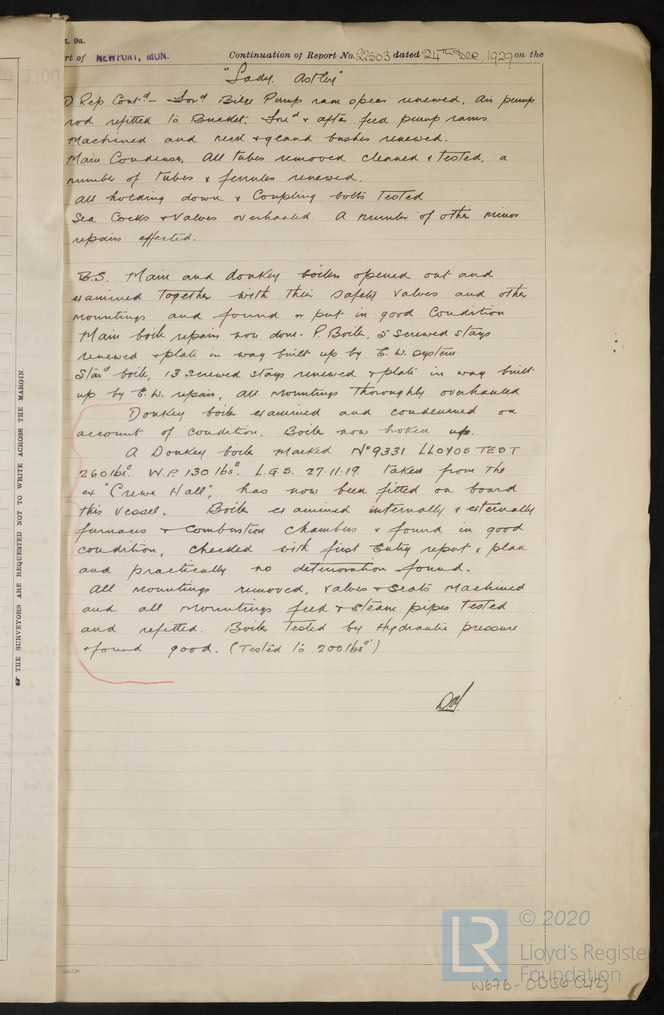 t. 9a.
rt of NEWPORT, MON. Continuation of Report No. 22503 dated 24th Dec, 1929 on the
"Lady. Astley"
D Rep. Contd - Ford Bilge Pump ram opens renewed. Air pump
rod refitted to Bucket. Ford & after feed pump rams
machined and neck & gland bushes renewed.
Main Condenser, All tubes removed cleaned & tested, a
number of tubes & ferrules renewed.
All holding down & Coupling bolts Tested
Sea Cocks & Valves overhauled. A number of other minor
repairs effected.
B.S. Main and donkey boilers opened out and
examined together with their safety valves and other
mountings and found or put in good Condition
Main boiler repairs now done. P. Boiler, 5 screwed stays
renewed & plate in way built up by E. W. system.
Stard boiler, 13 screwed stays renewed & plate in way built
up by E.W. repair, all mountings thoroughly overhauled
Donkey boiler examined and condemned on
account of condition. Boiler now
A Donkey boiler marked No 9331 LLOYDS TEST
260 lbs. W.P. 130 lbs. L.G.S. 27.11.19. Taken from the
ex "Crewe Hall", has now been fitted on board
this vessel. Boiler examined internally & externally
furnaces & Combustion chambers & found in good
condition, checked with first Entry report & plan
and practically no deterioration found.
All mountings removed, valves & seats machined
and all mountings feed & steam pipes tested
and refitted. Boiler tested by Hydraulic pressure
& found good. (Tested to 200 lbs)
☞ THE SURVEYORS ARE REQUESTED NOT TO WRITE ACROSS THE MARGIN.
LR © 2020
Lloyd's Registe
Foundation
W676-0036 (2/2)